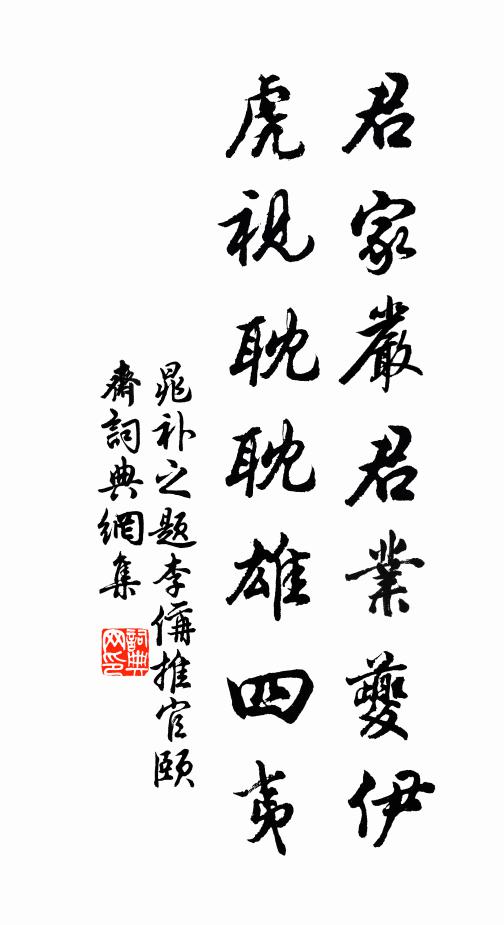 君家嚴君業夔伊
虎視耽耽雄四夷
晁补之题李偁推官頤
齋詞典網集
詞典网印